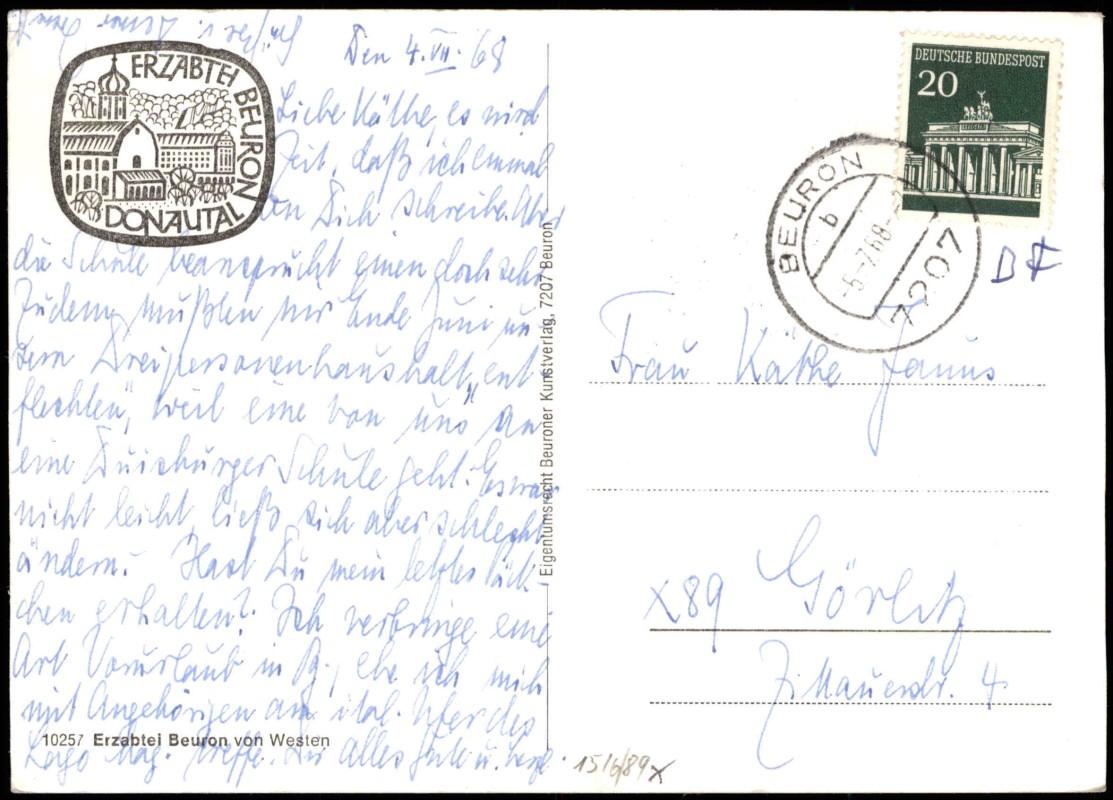 Den 4. VII. 68
ERZABTEI BEURON
DONAUTAL
Liebe Käthe, es wird
Zeit, daß ich einmal
an Dich schreibe. Aber
die Schule beansprucht einen doch sehr.
Zudem mußten wir Ende Juni un
sern Dreipersonenhaushalt „ent
flechten", weil eine von uns an
eine Duisburger Schule geht. Es war
nicht leicht, ließ sich aber schlecht
ändern. Hast Du mein letztes Päck-
chen erhalten? Ich verbringe eine
Art Vorurlaub in B., ehe ich mich
mit Angehörigen am ital. Ufer des
Lago Mag. treffe. Dir alles Gute u. herzl.
10257 Erzabtei Beuron von Westen
Eigentumsrecht Beuroner Kunstverlag, 7207 Beuron
DEUTSCHE BUNDESPOST
20
BEURON
b
-5.-7.68-
7207
Frau Käthe Janus
X89 Görlitz
Zittauerstr. 4
15/6/89 x